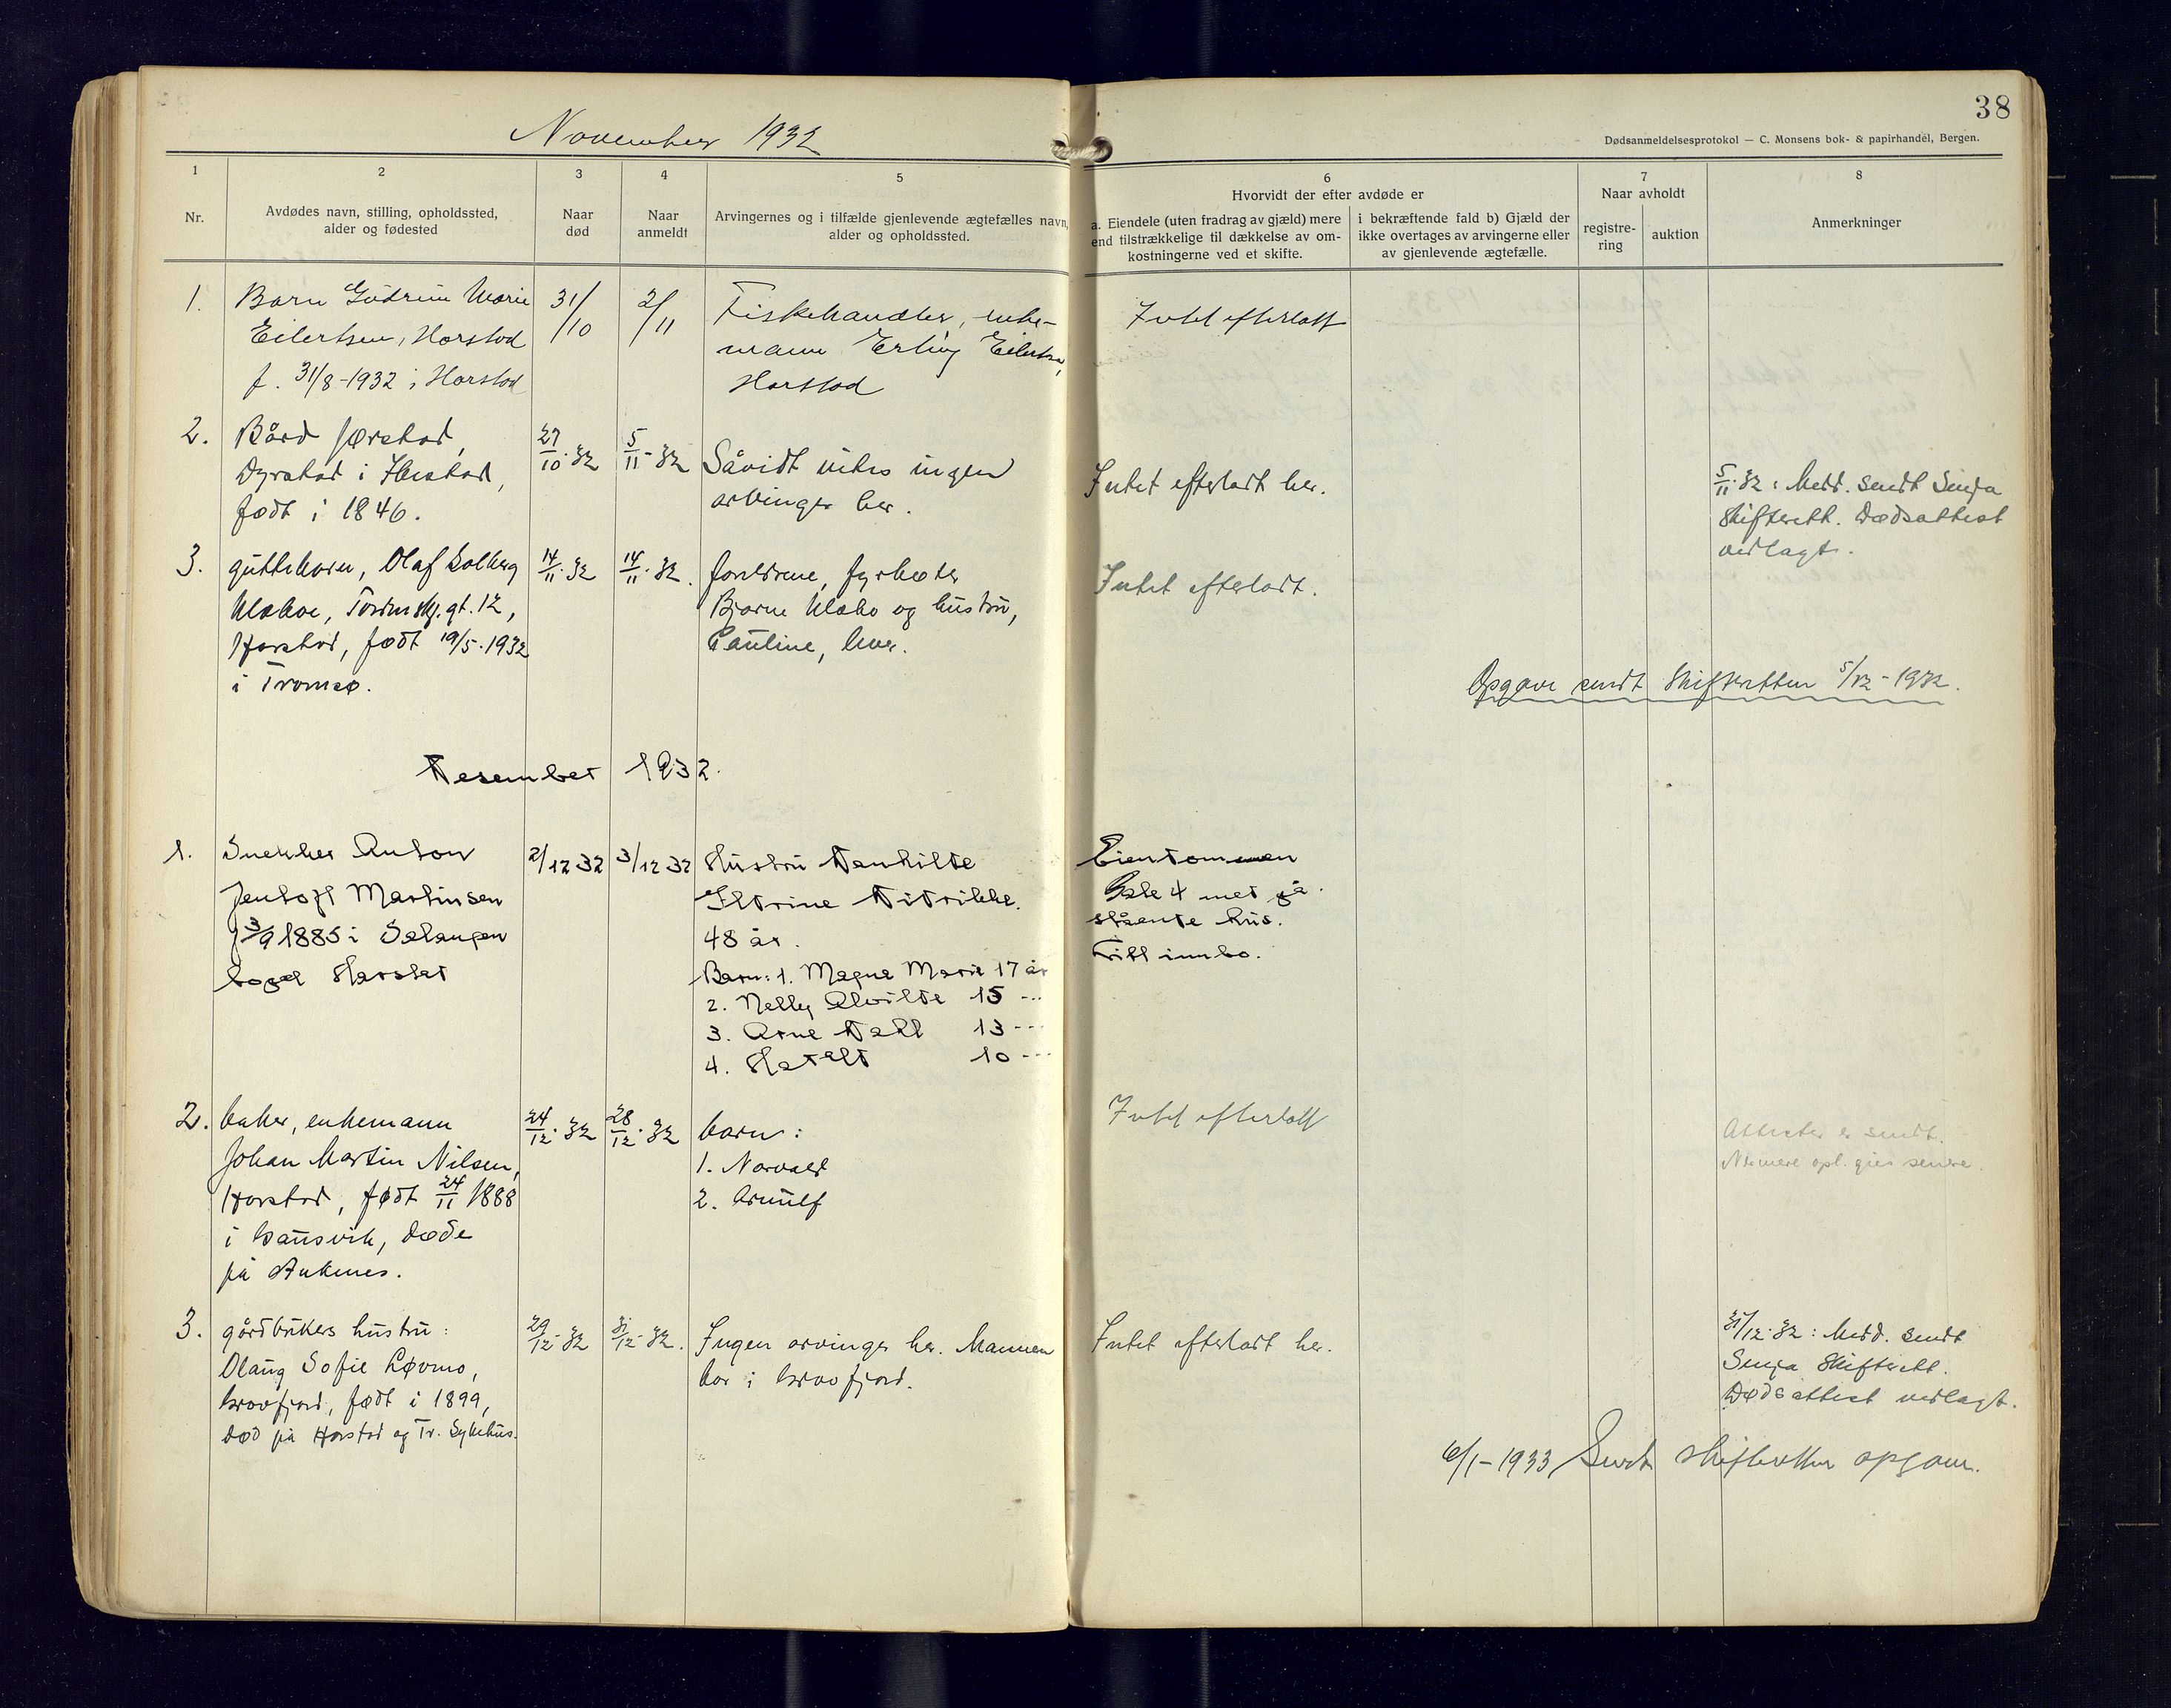 38
November 1932
Dødsanmeldelsesprotokol — C. Monsens bok- & papirhandel, Bergen.
1
Nr.
2
Avdødes navn, stilling, opholdssted,
alder og fødested
3
Naar
død
4
Naar
anmeldt
5
Arvingernes og i tilfælde gjenlevende ægtefælles navn,
alder og opholdssted.
6
Hvorvidt der efter avdøde er
a. Eiendele (uten fradrag av gjæld) mere
end tilstrækkelige til dækkelse av om-
kostningerne ved et skifte.
i bekræftende fald b) Gjæld der
ikke overtages av arvingerne eller
av gjenlevende ægtefælle.
7
Naar avholdt
registre-
ring
auktion
8
Anmerkninger
1.
Barn Gudrun Marie
Eilertsen, Harstad
f. 31/8-1932 i Harstad
31/10
2/11
Fiskehandler, enke-
mann Erling Eilertsen,
Harstad
Intet efterlatt
2.
Bård
Dyrstad i Ibestad,
født i 1846.
27/10-32
5/11-32
Såvidt vites ingen
arvinger her.
Intet efterladt her.
5/11-32: Medd. sendt Senja
Skifterett. Dødsattest
vedlagt.
3.
guttebarn, Olaf Solberg
gt. 12,
Harstad, født 19/5-1932
i Tromsø.
14/11-32
14/11-32.
foreldrene, fyrbøter
Bjarne og hustru,
Pauline, her.
Intet efterladt.
Opgave sendt Skifteretten 5/12-1932.
Desember 1932.
1.
Snekker Anton
Jentoft Martinsen
f 3/9 1885 i Salangen
Harstad
2/12 32
3/12 32
Hustru
48 år.
Barn: 1. Magna Marie 17 år
2. Nelly Alvilde 15 ---
3. Arne Dahl 13 ---
4. Harald 10 ---
Eiendommen
4 med på-
stående hus.
Litt innbo.
2.
baker, enkemann
Johan Martin Nilsen,
Harstad, født 24/11 1888
i Gausvik, døde
på Ankenes.
24/12-32
28/12-32
barn:
1. Norvald
2. Arnulf
Intet efterlatt
Attester er sendt.
Nærmere opl. gies senere.
3.
gårdbrukers hustru:
Olaug Sofie Løvmo,
Grovfjord, født i 1899,
død på Harstad og Tr. Sykehus.
29/12-32
31/12-32.
Ingen arvinger her. Mannen
bor i Grovfjord.
Intet efterladt her.
31/12-32: Medd. sendt
Senja Skifterett.
Dødsattest vedlagt.
6/1-1933 Sendt skifteretten opgave.